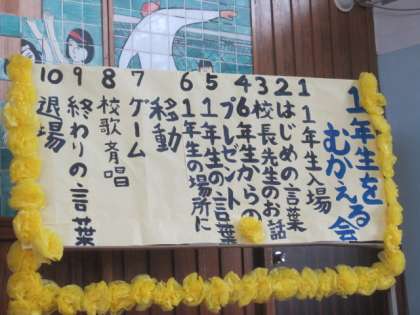 1年生を
むかえる会
1 1年生入場
2 はじめの言葉
3 校長先生のお話
4 6年生からの
プレゼント
5 1年生の言葉
6 1年生の場所に
移動
7 ゲーム
8 校歌斉唱
9 終わりの言葉
10 退場